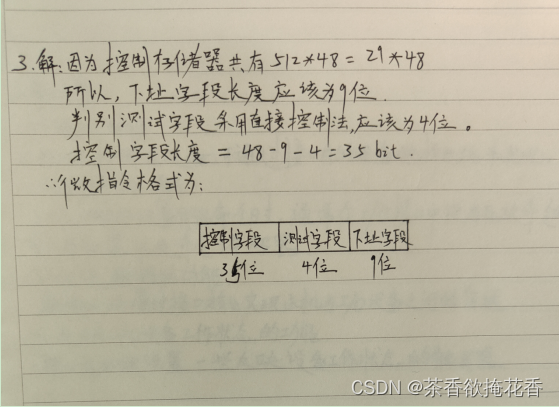 3.解:因为控制存储器共有512*48=29*48
所以,下址字段长度应该为9位.
判别测试字段采用直接控制法,应该为4位。
控制字段长度=48-9-4=35bit.
∴微指令格式为:
控制字段 测试字段 下址字段
35位 4位 9位
CSDN @茶香欲掩花香